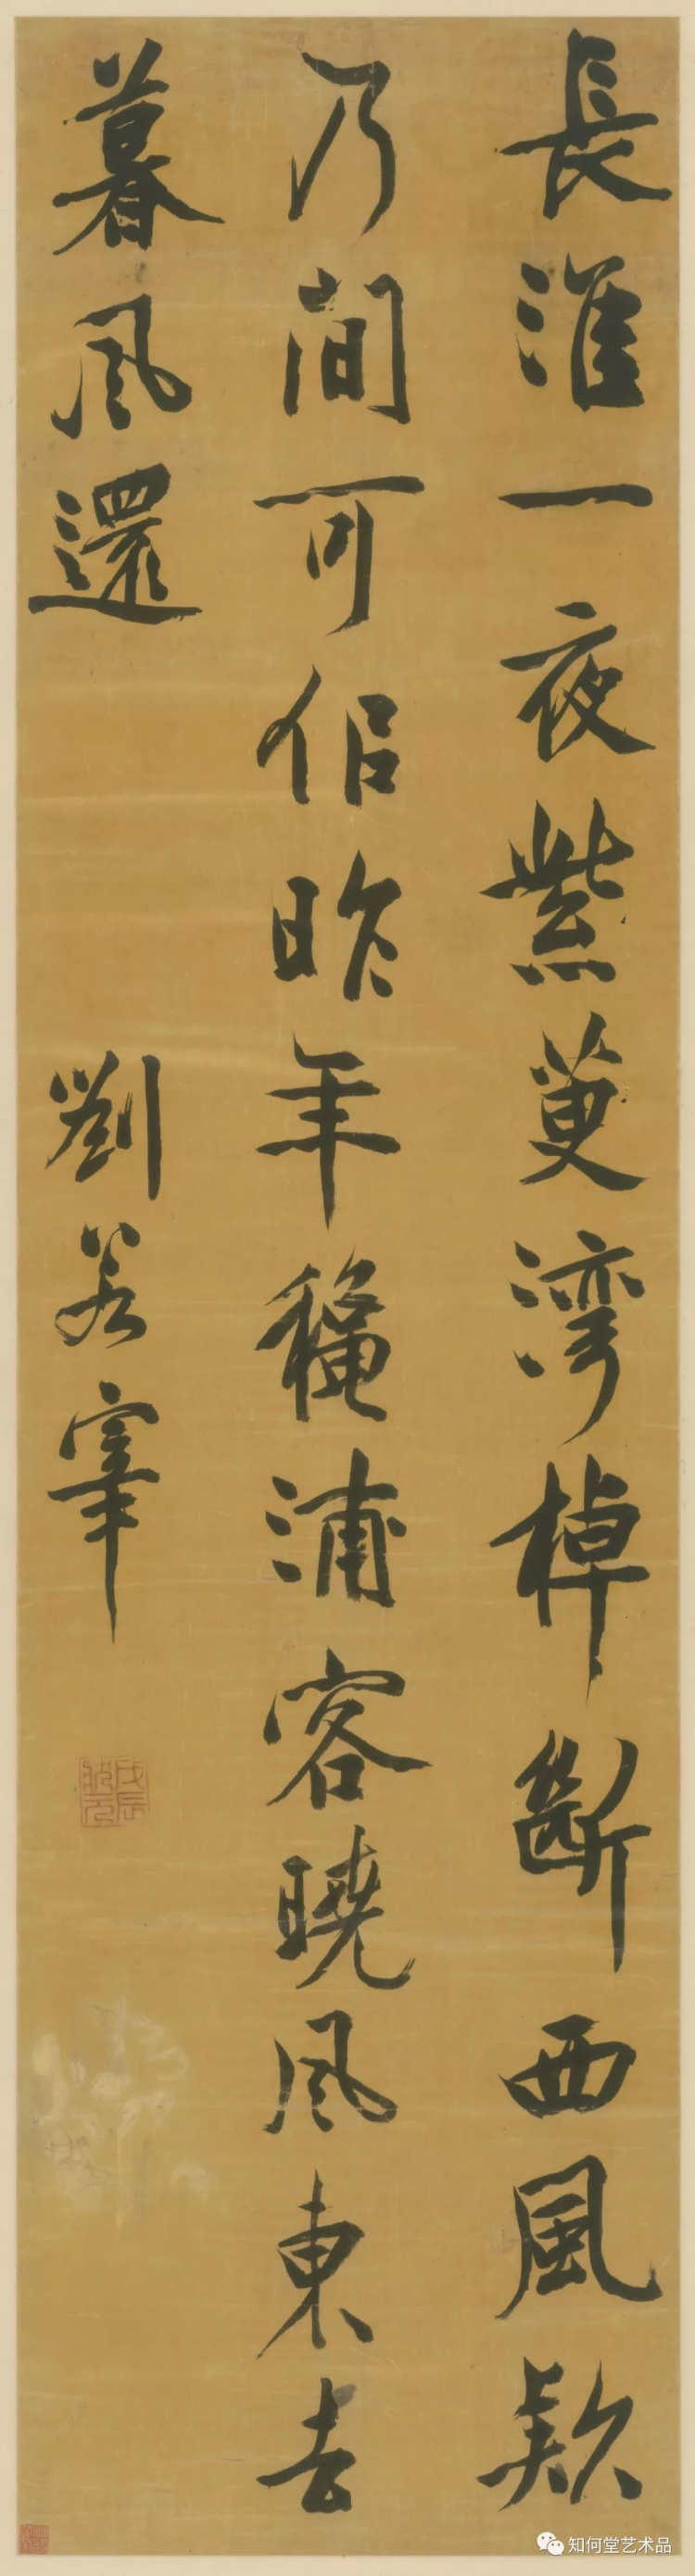 長淮一夜紫萸湾棹斷西風欵
乃間可佀昨年穐浦客曉風東去
暮風還
劉若宰
戊辰
知何堂艺术品